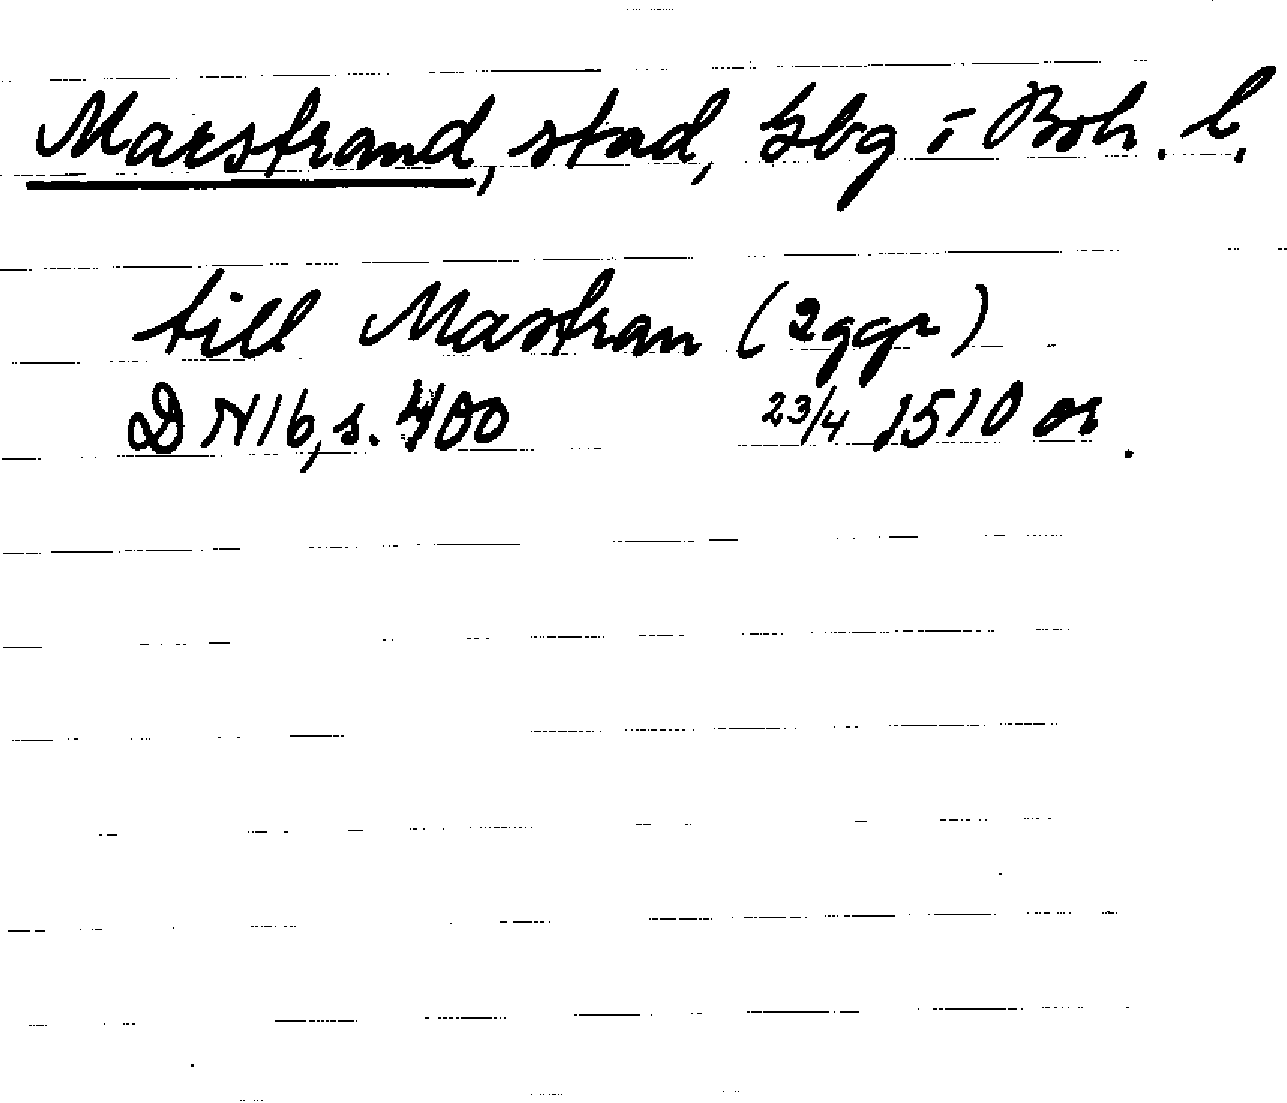 Marstrand, stad, Gbg o Boh. l.
till Mastran (2ggr)
DN16, s. 400 23/4 1510 or.